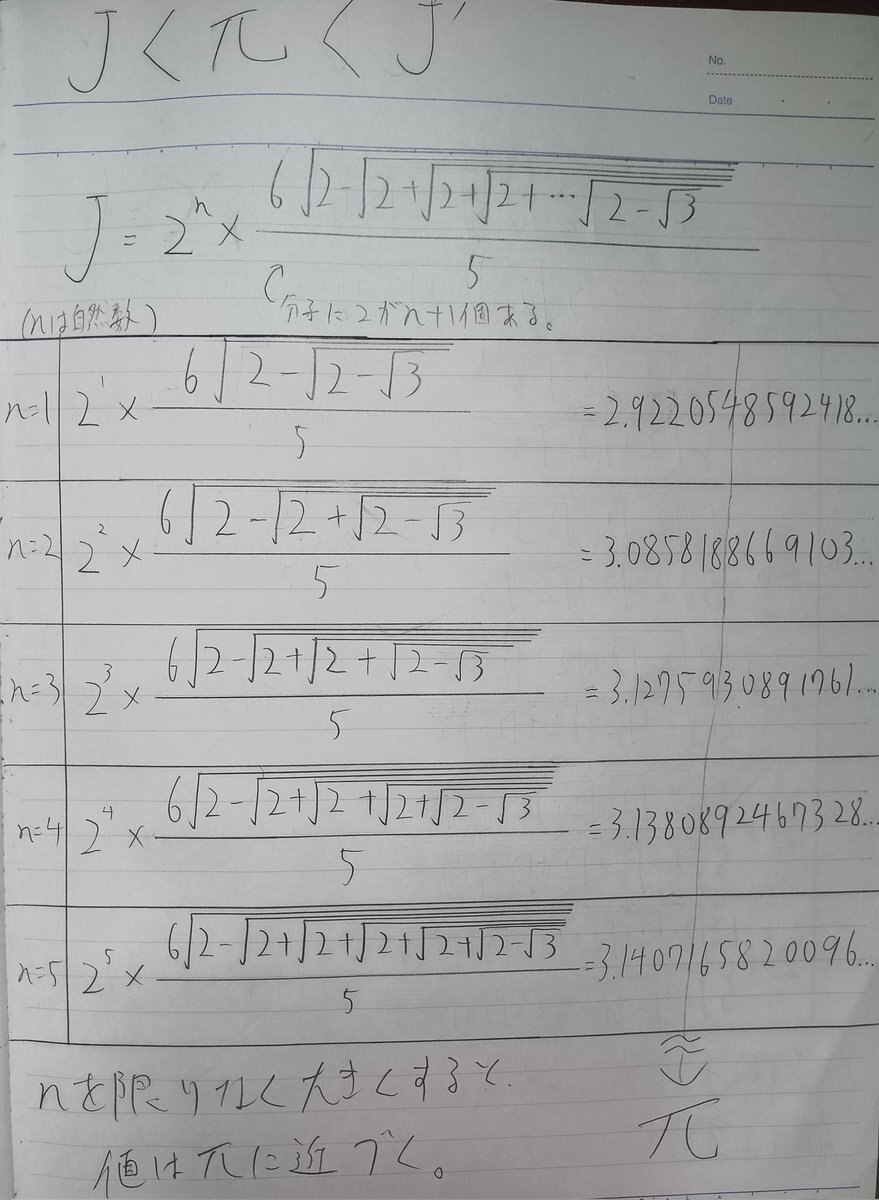 J < π < J′
No.
Date
J = 2^n × 6√(2-√(2+√(2+√(2+…√(2-√3))))) / 5
(nは自然数)
分子に2がn+1個ある。
n=1 2^1 × 6√(2-√(2-√3)) / 5 = 2.9220548592418...
n=2 2^2 × 6√(2-√(2+√(2-√3))) / 5 = 3.0858188669103...
n=3 2^3 × 6√(2-√(2+√(2+√(2-√3)))) / 5 = 3.1275930891761...
n=4 2^4 × 6√(2-√(2+√(2+√(2+√(2-√3))))) / 5 = 3.1380892467328...
n=5 2^5 × 6√(2-√(2+√(2+√(2+√(2+√(2-√3)))))) / 5 = 3.1407165820096...
nを限りなく大きくすると、
値はπに近づく。
π